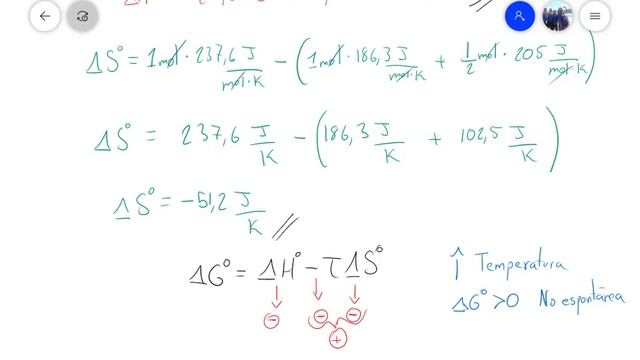 ΔS° = 1mol · 237,6 J/mol·K − (1mol · 186,3 J/mol·K + 1/2 mol · 205 J/mol·K)
ΔS° = 237,6 J/K − (186,3 J/K + 102,5 J/K)
ΔS° = −51,2 J/K //
ΔG° = ΔH° − TΔS°
↑ Temperatura
ΔG° > 0 No espontárea
⊖ ⊖ ⊖
⊕